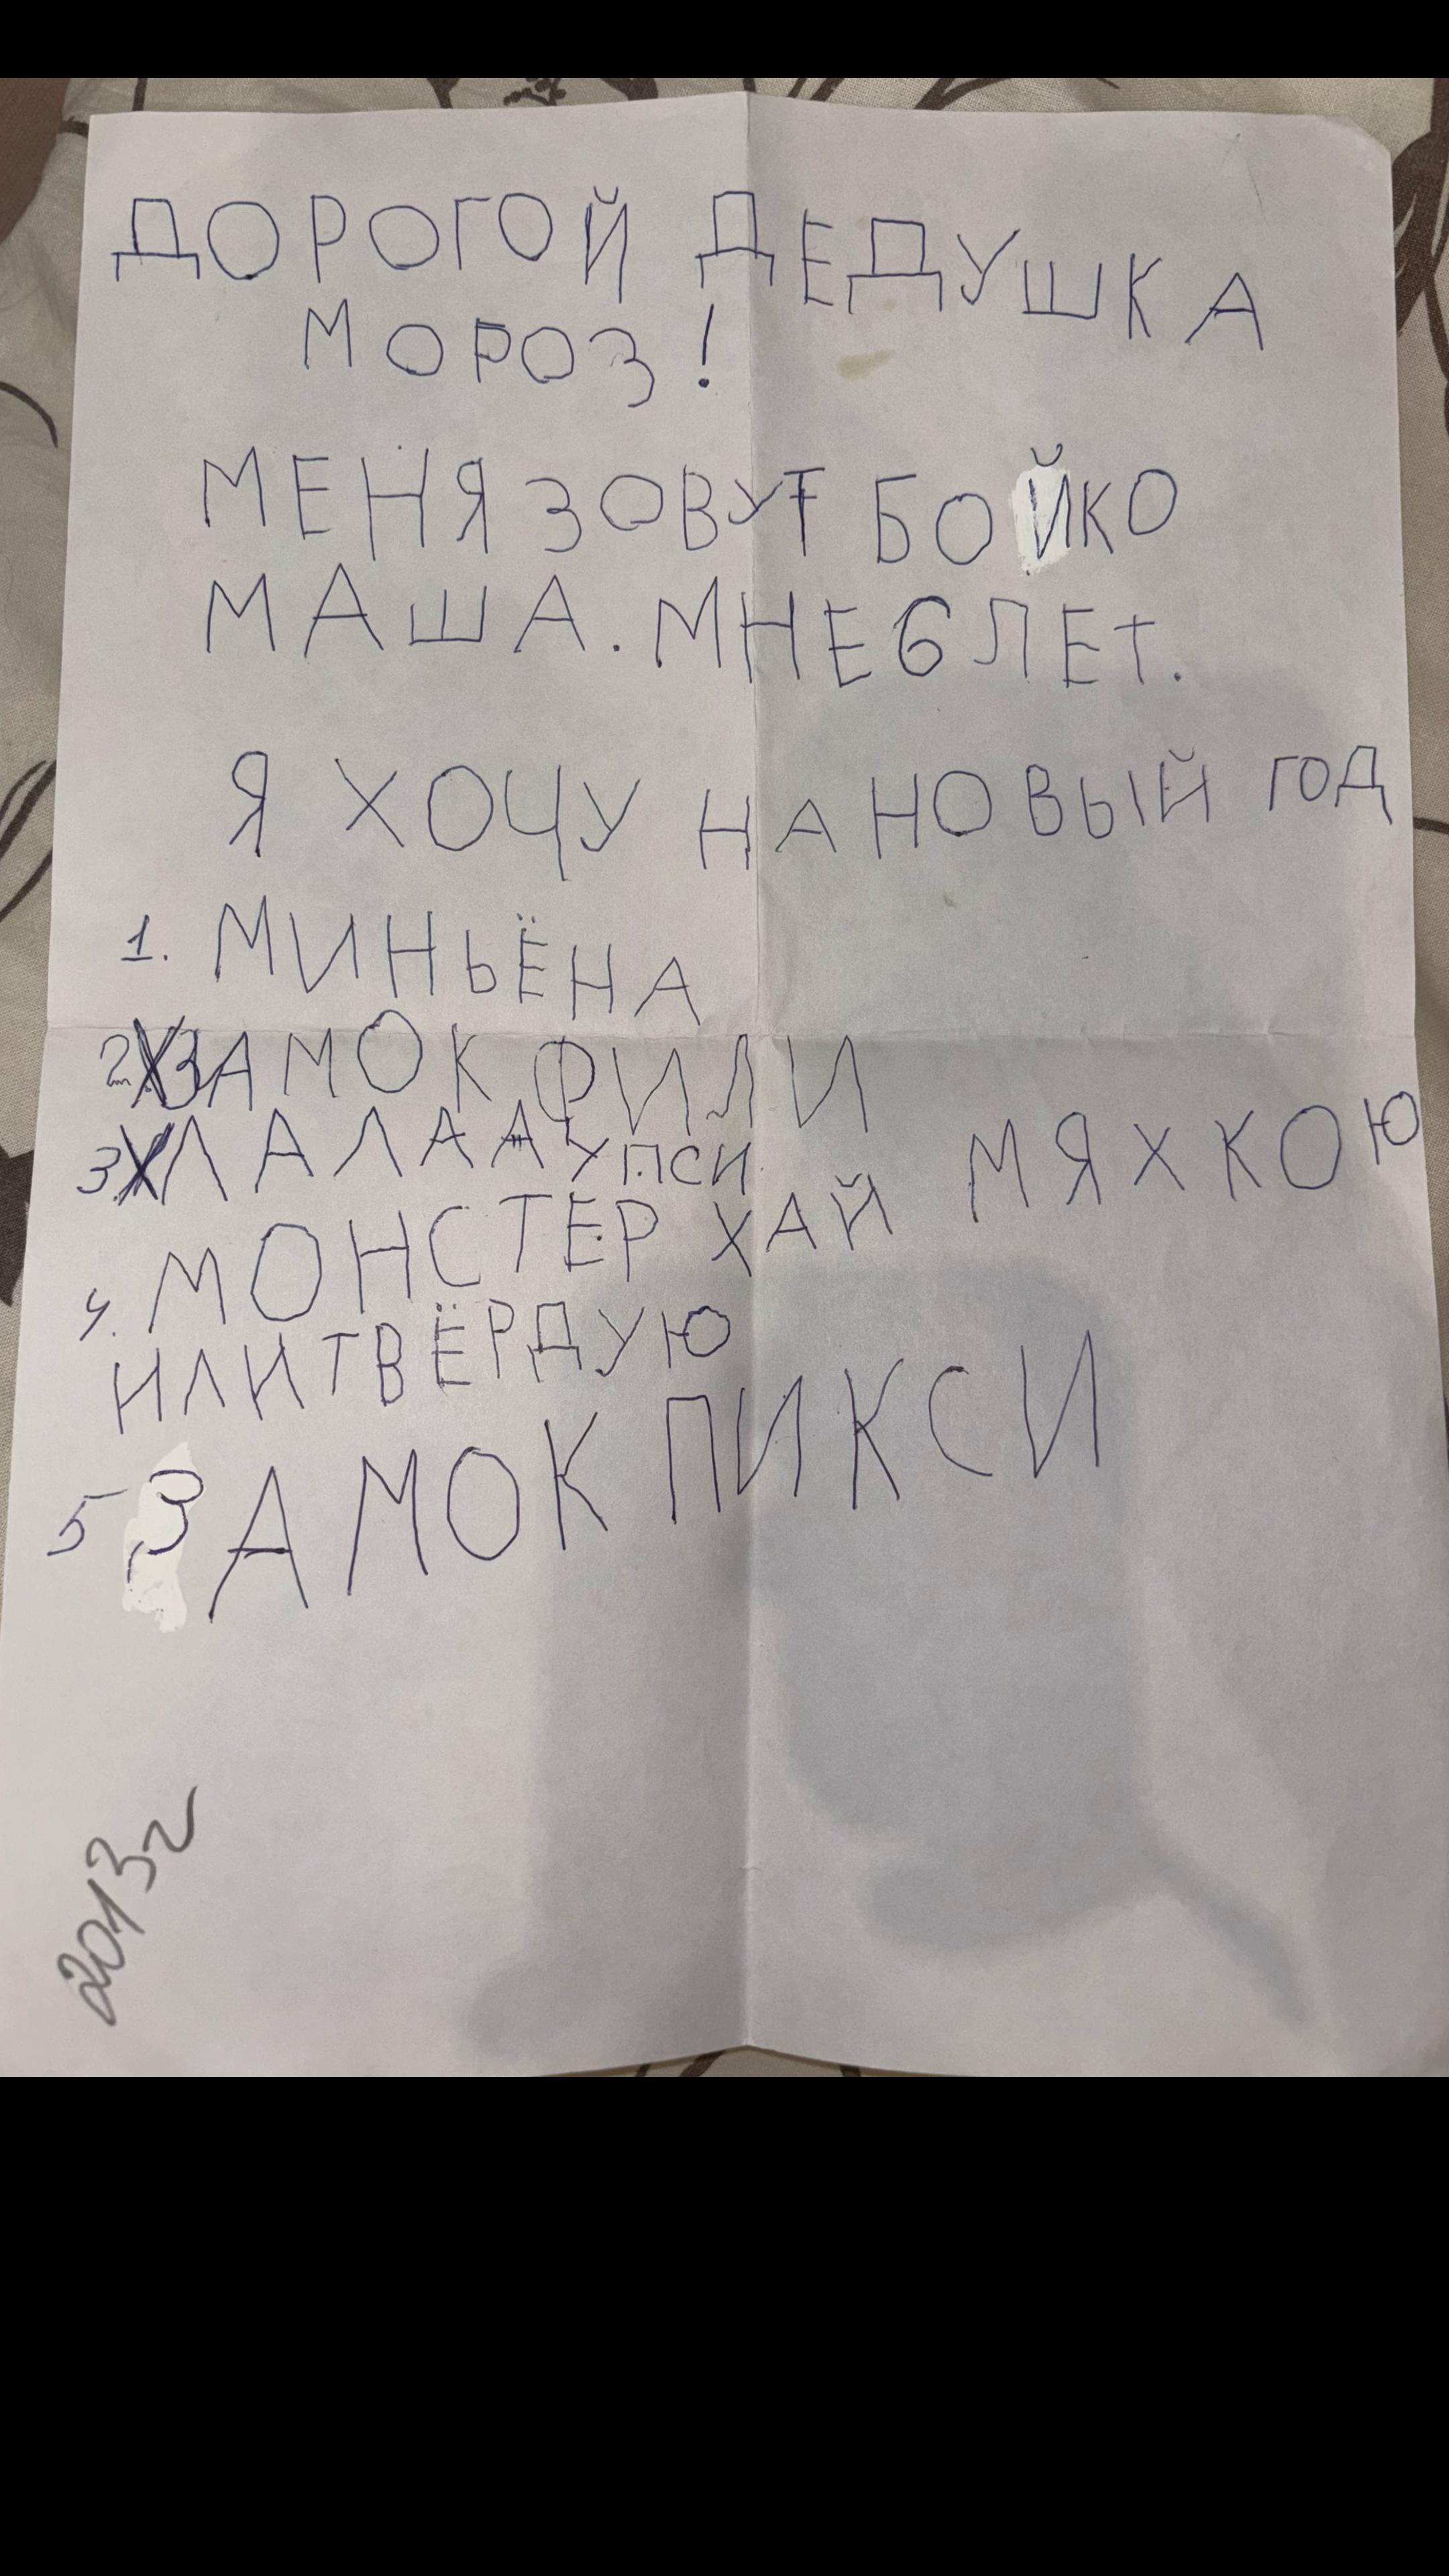 ДОРОГОЙ ДЕДУШКА
МОРОЗ!
МЕНЯ ЗОВУТ БОЙКО
МАША. МНЕ 6 ЛЕТ.
Я ХОЧУ НА НОВЫЙ ГОД
1. МИНЬЁНА
2. ЗАМОК ФИЛИ
3. ЛАЛАА УПСИ
4. МОНСТЕР ХАЙ МЯХКОЮ
ИЛИ ТВЁРДУЮ
5 ЗАМОК ПИКСИ
2013г